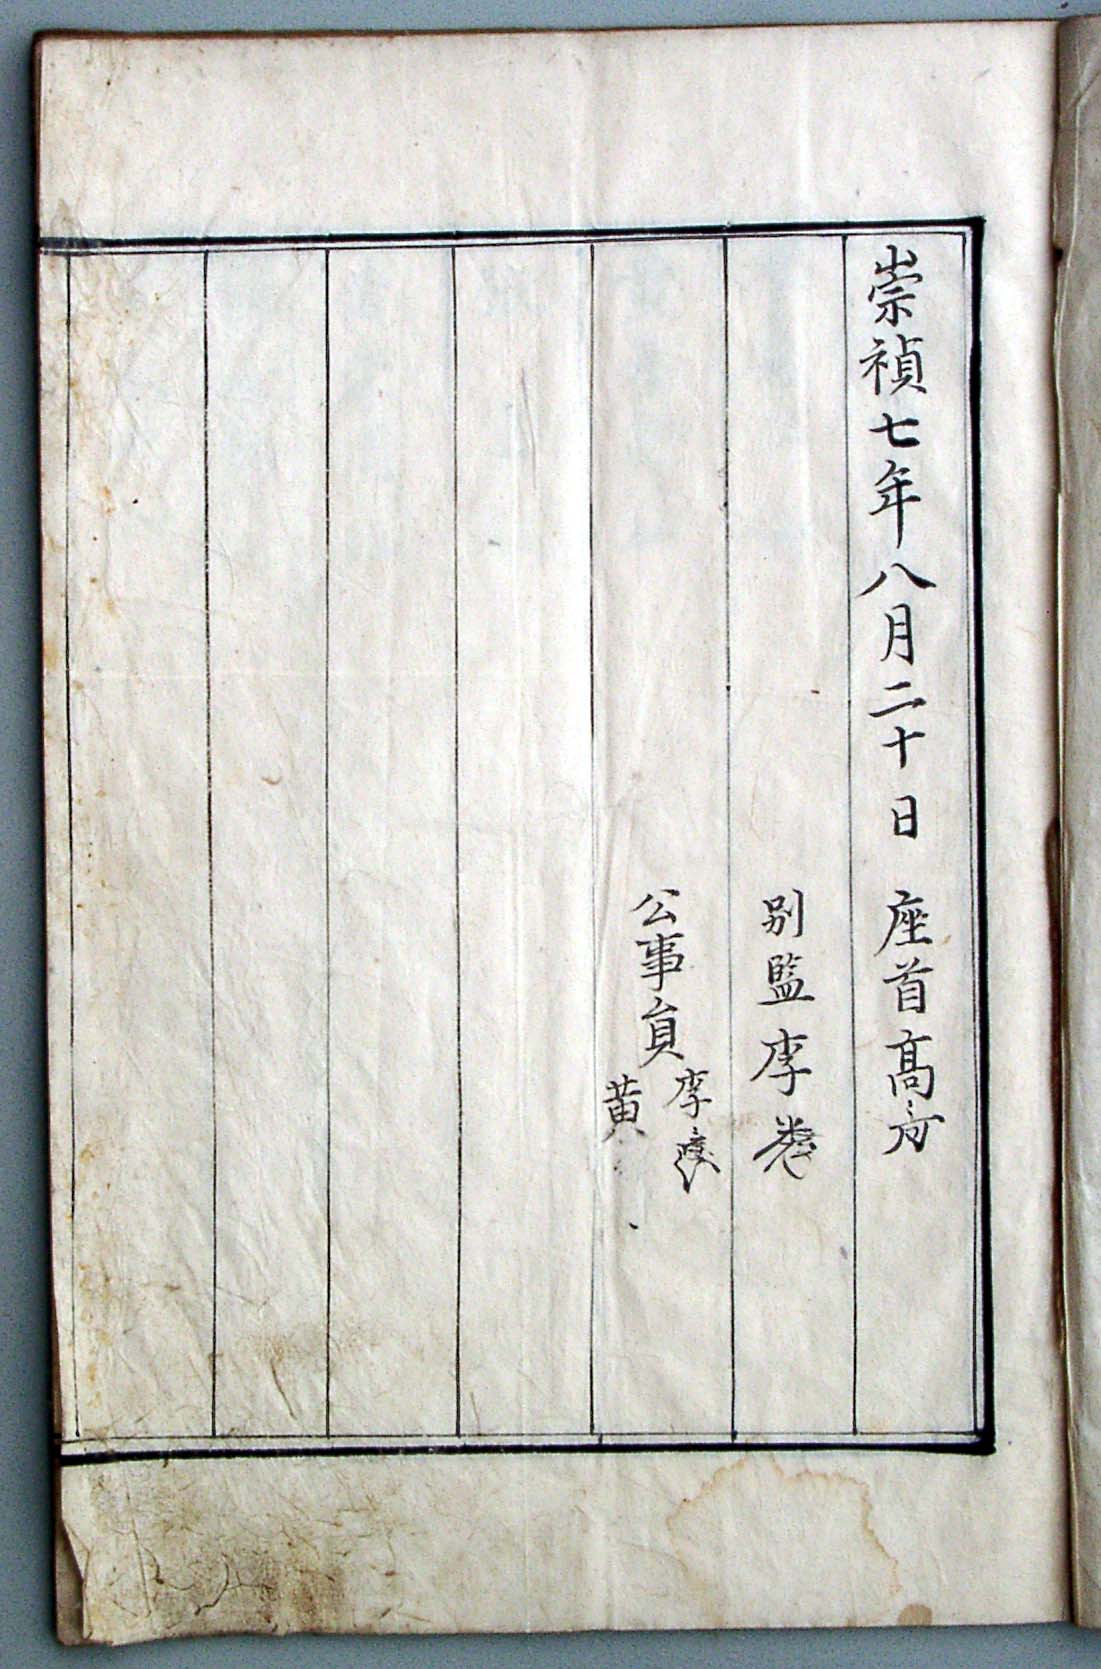 崇禎七年八月二十日 座首高
別監李
公事員 李
黄